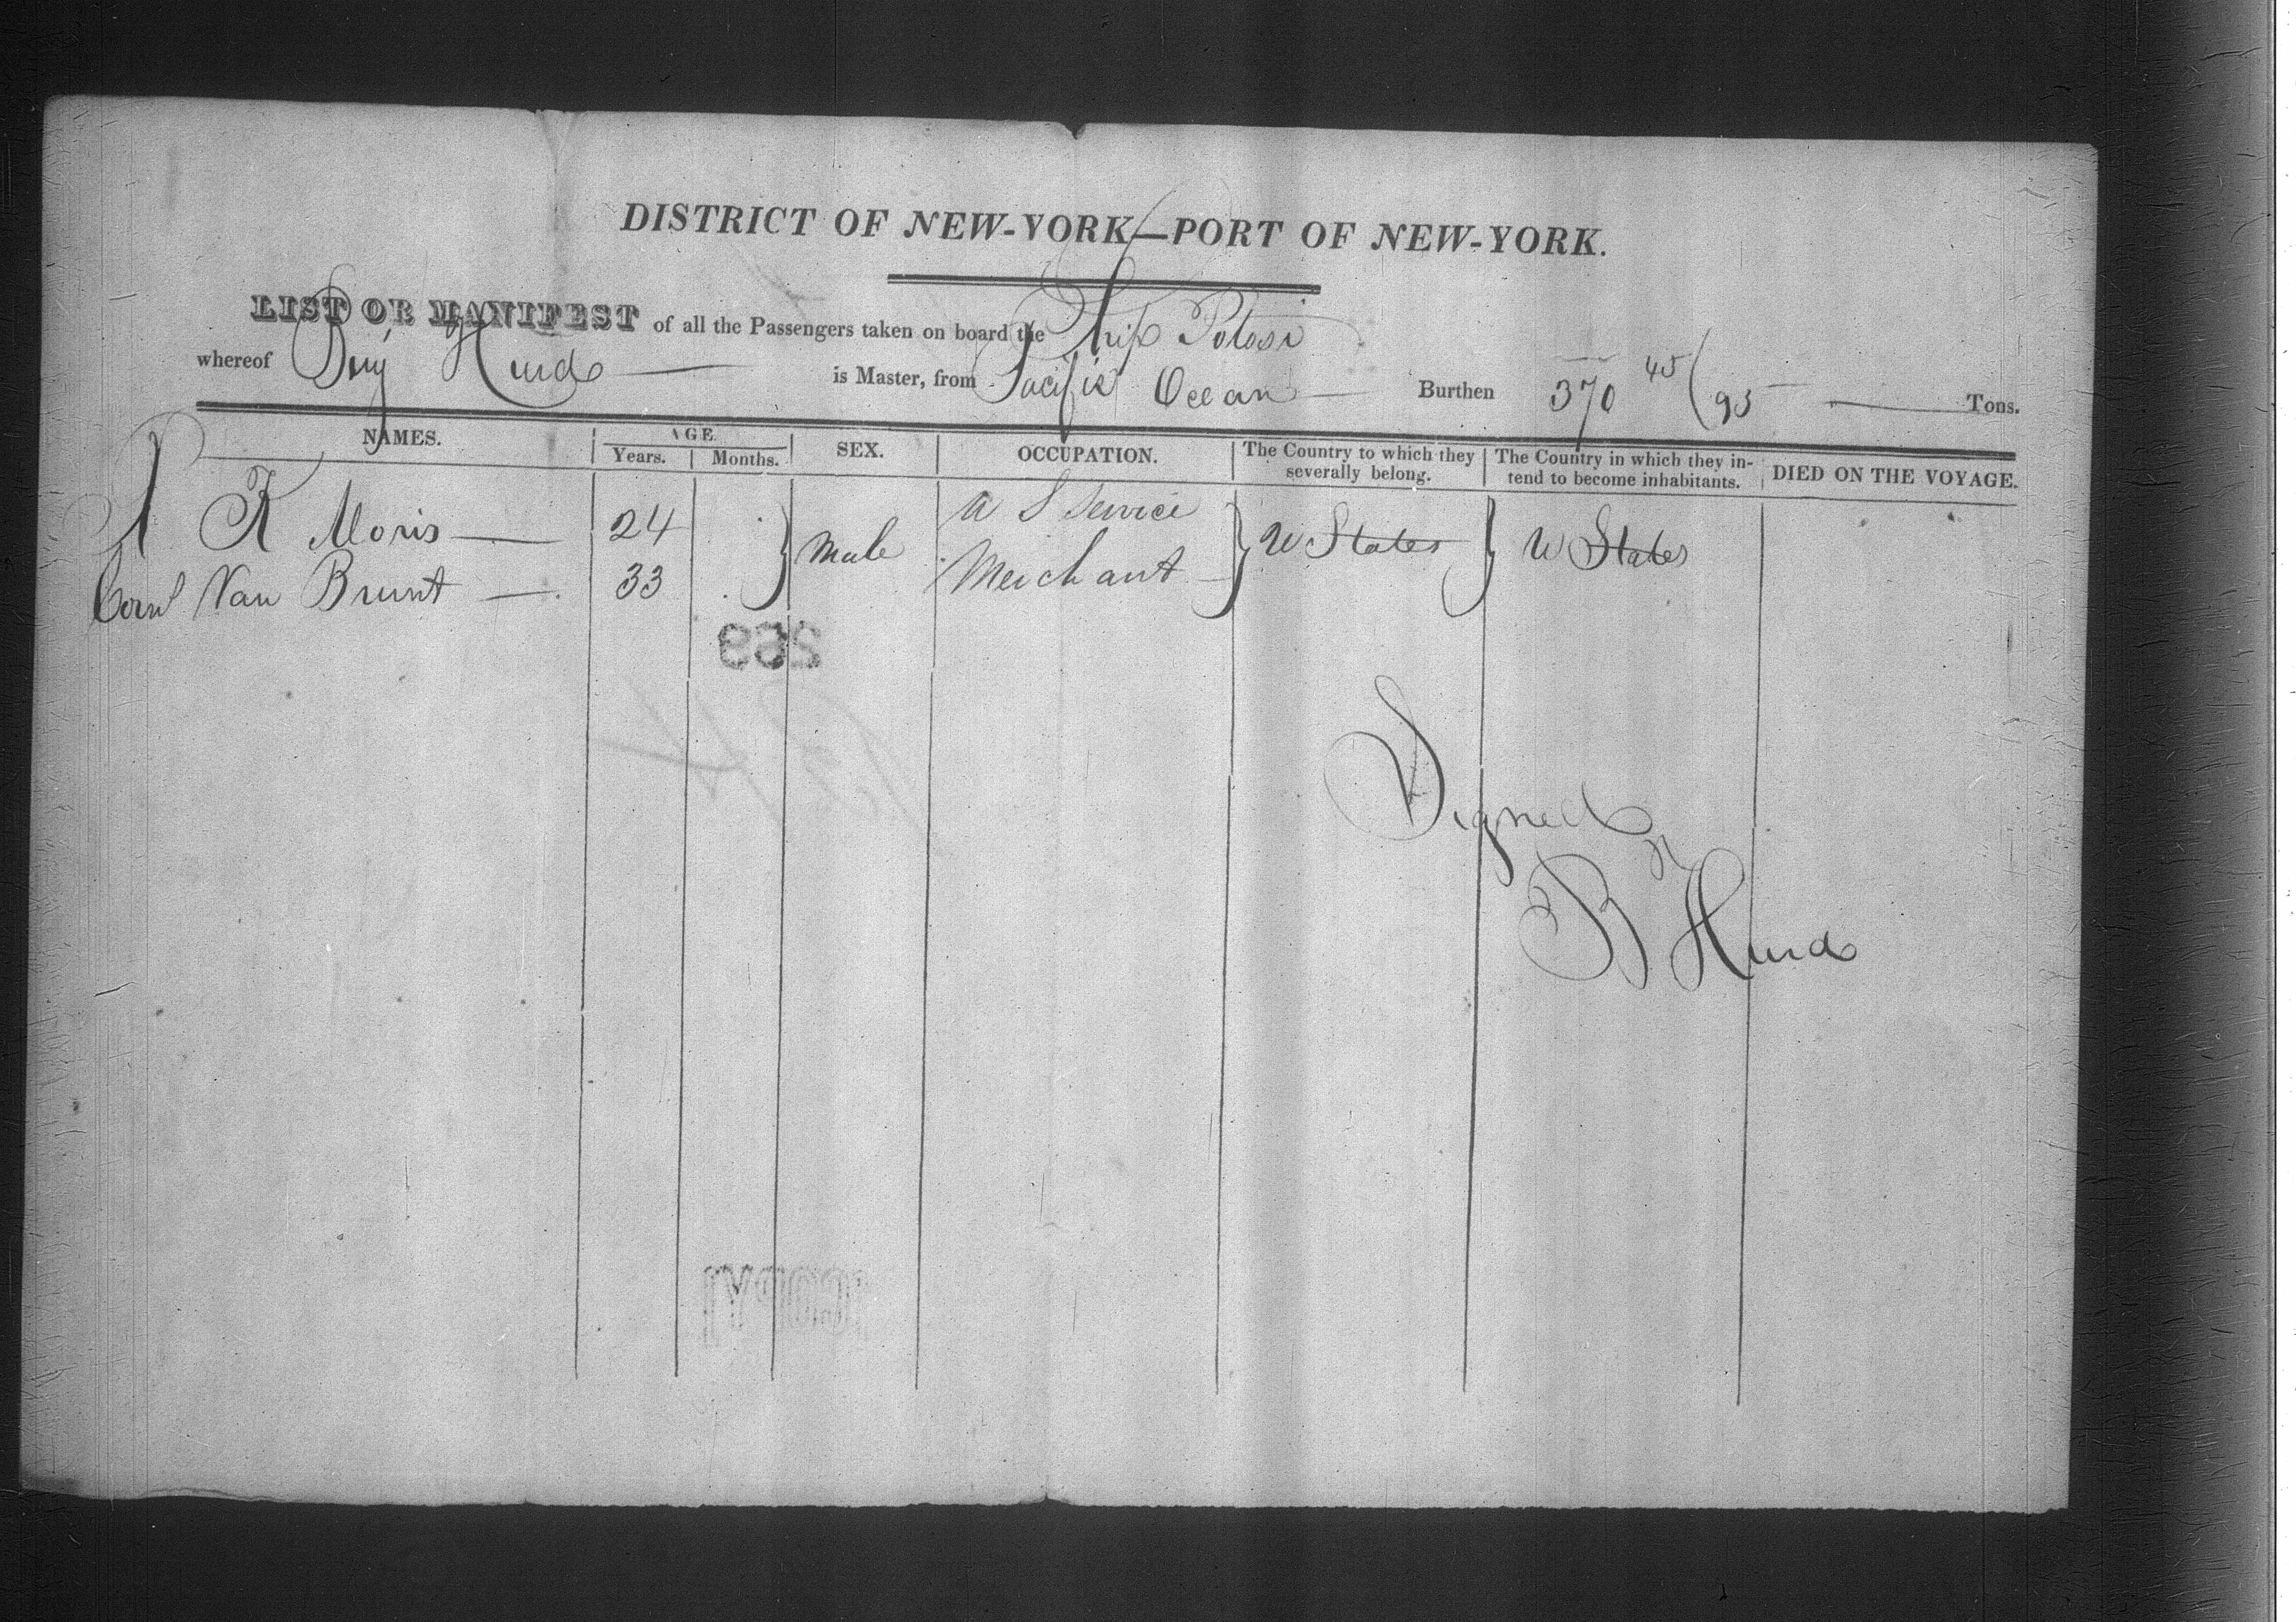 DISTRICT OF NEW-YORK—PORT OF NEW-YORK.
LIST OR MANIFEST of all the Passengers taken on board the Ship Potosi
whereof Benj Hurd is Master, from Pacific Ocean Burthen 370 45/95 Tons.
NAMES. AGE. SEX. OCCUPATION. The Country to which they severally belong. The Country in which they intend to become inhabitants. DIED ON THE VOYAGE.
Years. Months.
K Moris 24 Male U S Service U States U States
Corn Van Brunt 33 Merchant
269
Signed
B Hurd
COPY